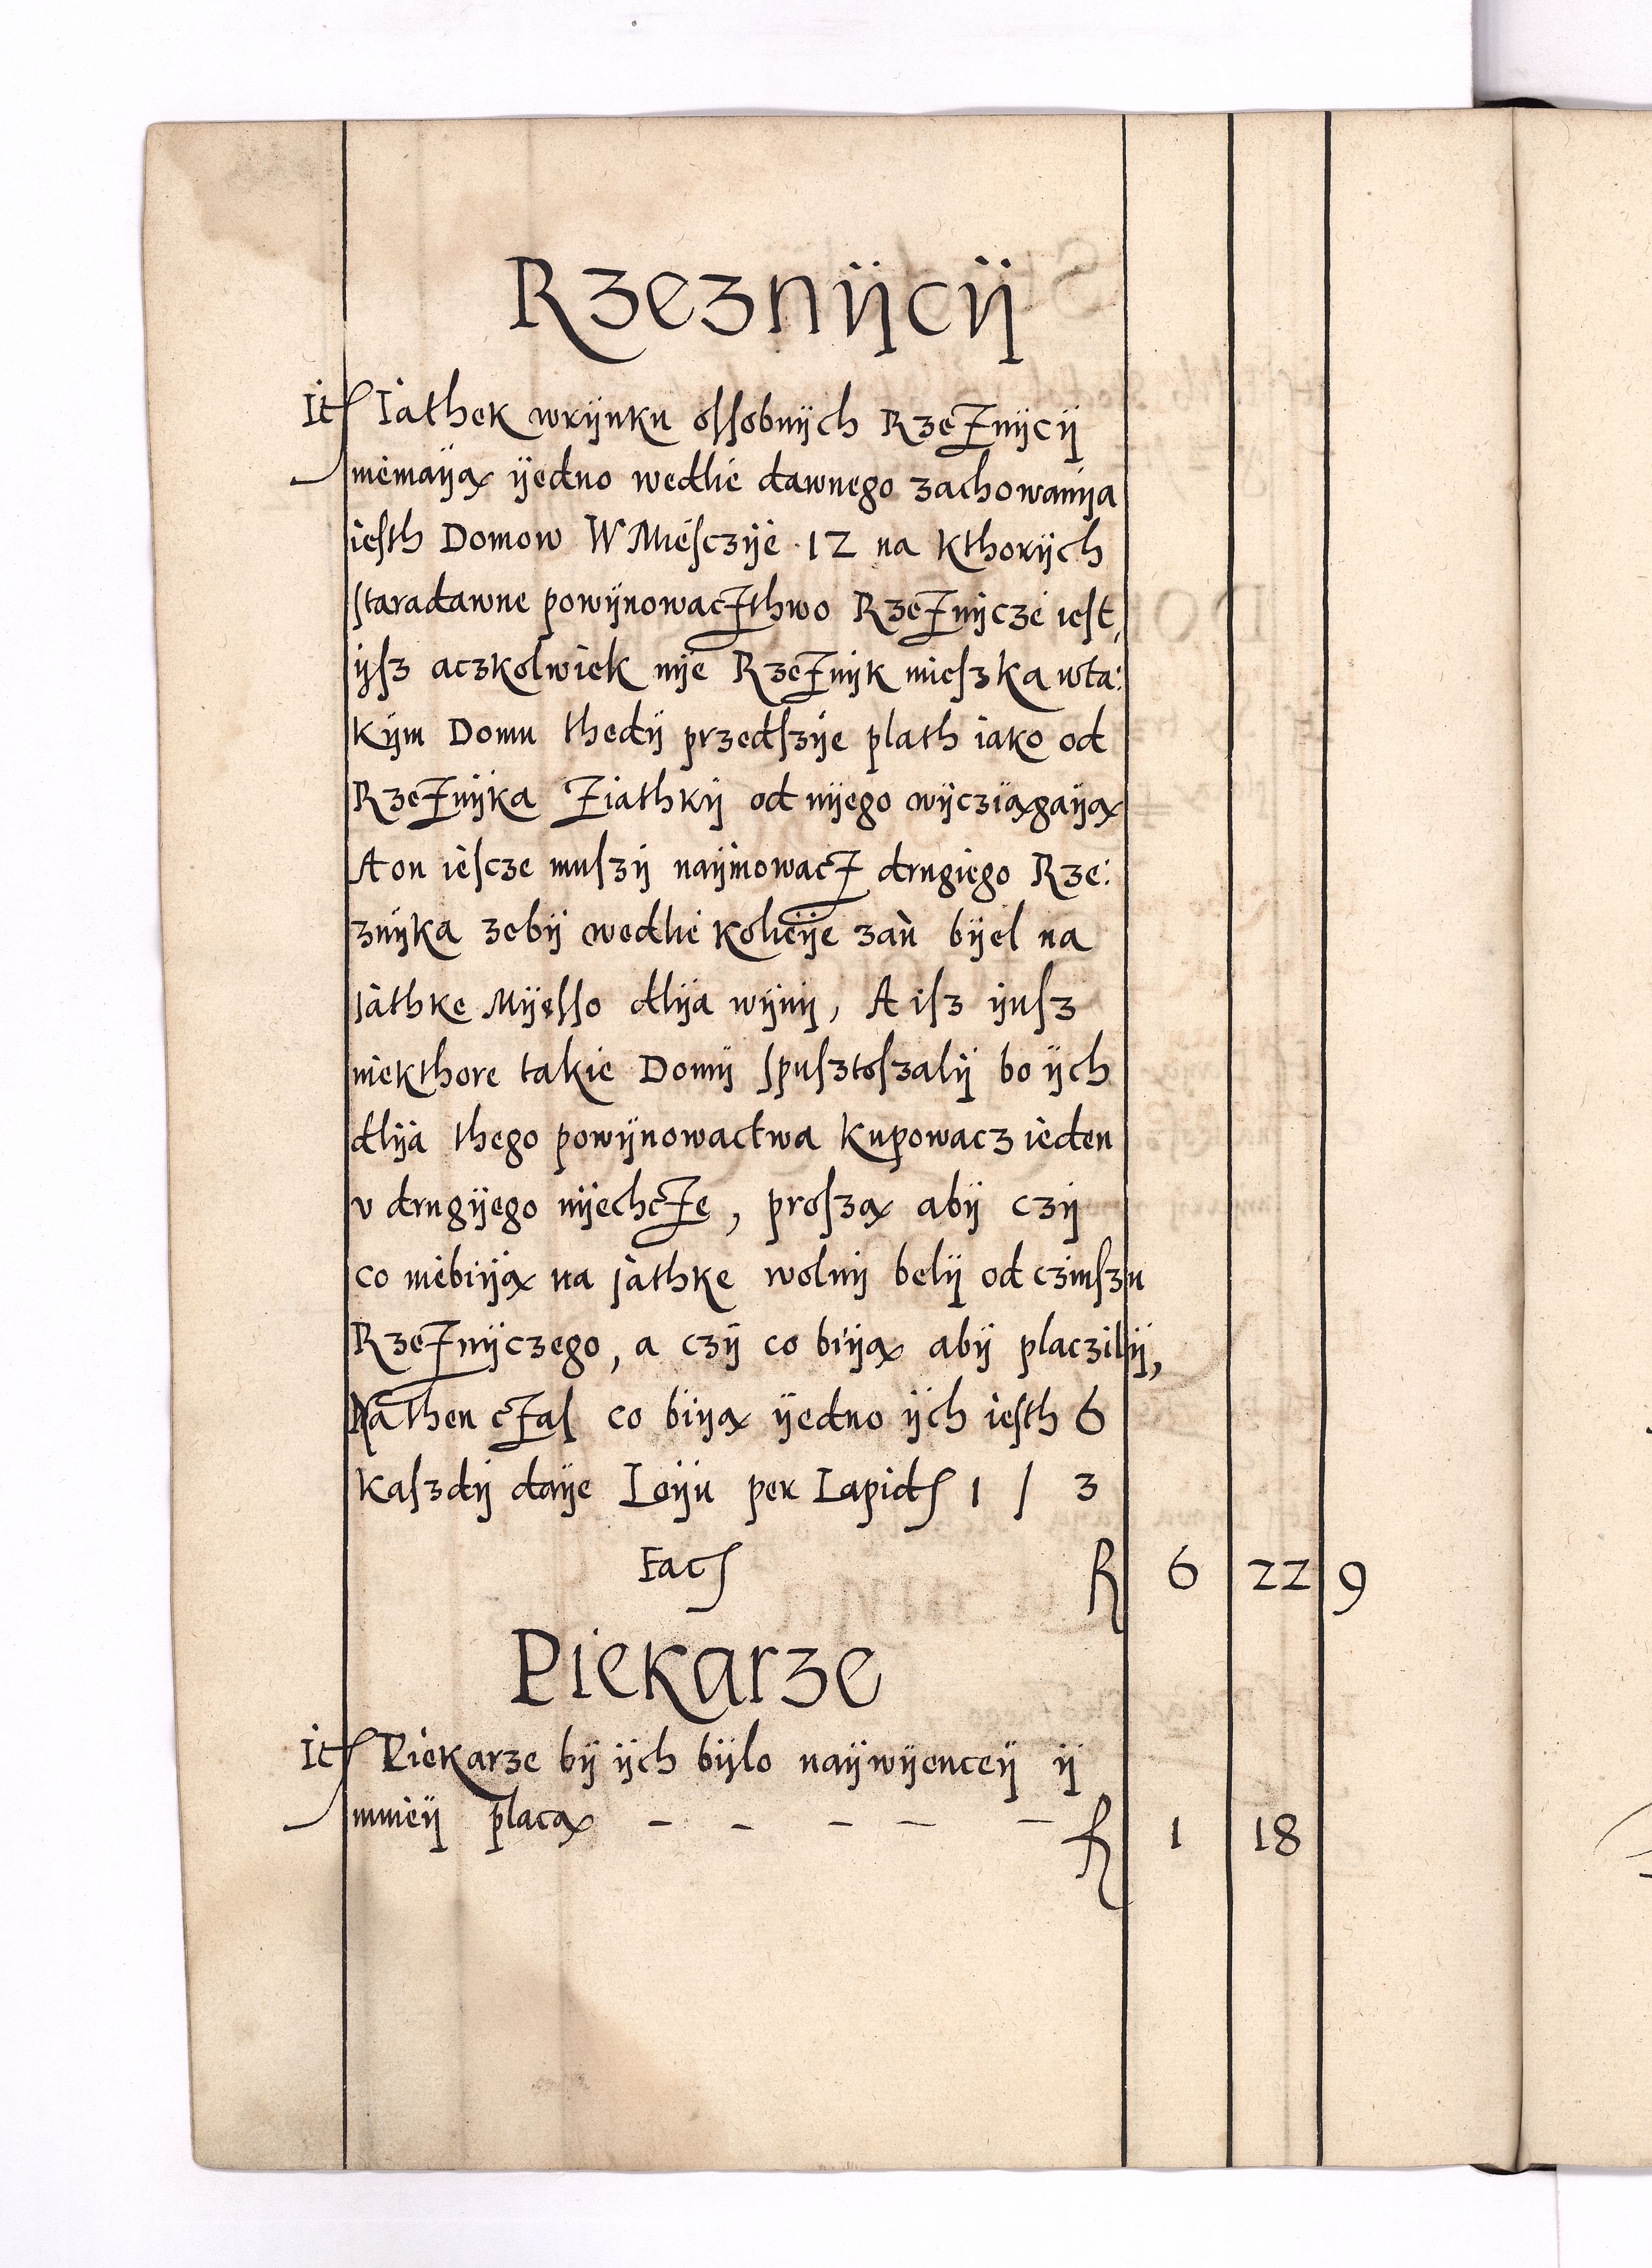 Rzeznijcij
It Iathek wrijnku ossobnijch Rzeznijcij
niemaija ijedno wedlie dawnego zachowanija
iesth Domow W Miesczije · 12 na Kthorijch
staradawne powijnowaczthwo Rzeznijcze iest,
ijsz aczkolwiek nije Rzeznijk mieszka wta:
kijm Domu thedij przedszije plath iako od
Rzeznijka Ziathkij od nijego wijcziagaija
A on iescze muszij naijmowacz drugiego Rze:
znijka zebij wedlie koliejje zan bijel na
jathke Mijesso dlija wijnij, A isz ijusz
niekthore takie Domij spusztoszalij bo ijch
dlija thego powijnowactwa kupowacz ieden
v drugijego nijechcze, prosza abij czij
co niebiija na jathke wolnij belij od czinszu
Rzeznijczego, a czij co biija abij placzilij,
Nathen czas co biija ijedno ijch iesth 6
Kaszdij daije Loiju per Lapid 1 / 3
Fac R 6 22 9
Piekarze
It Piekarze bij ijch bijlo naijwijenceij ij
mnieij placa – – – – – R 1 18